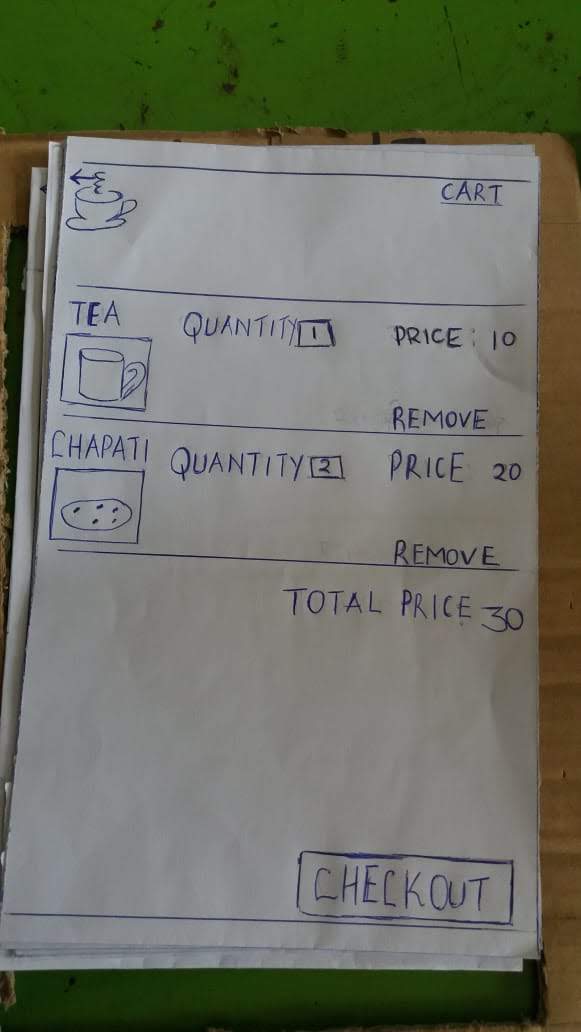 CART
TEA QUANTITY 1 PRICE: 10
REMOVE
CHAPATI QUANTITY 2 PRICE 20
REMOVE
TOTAL PRICE 30
CHECKOUT